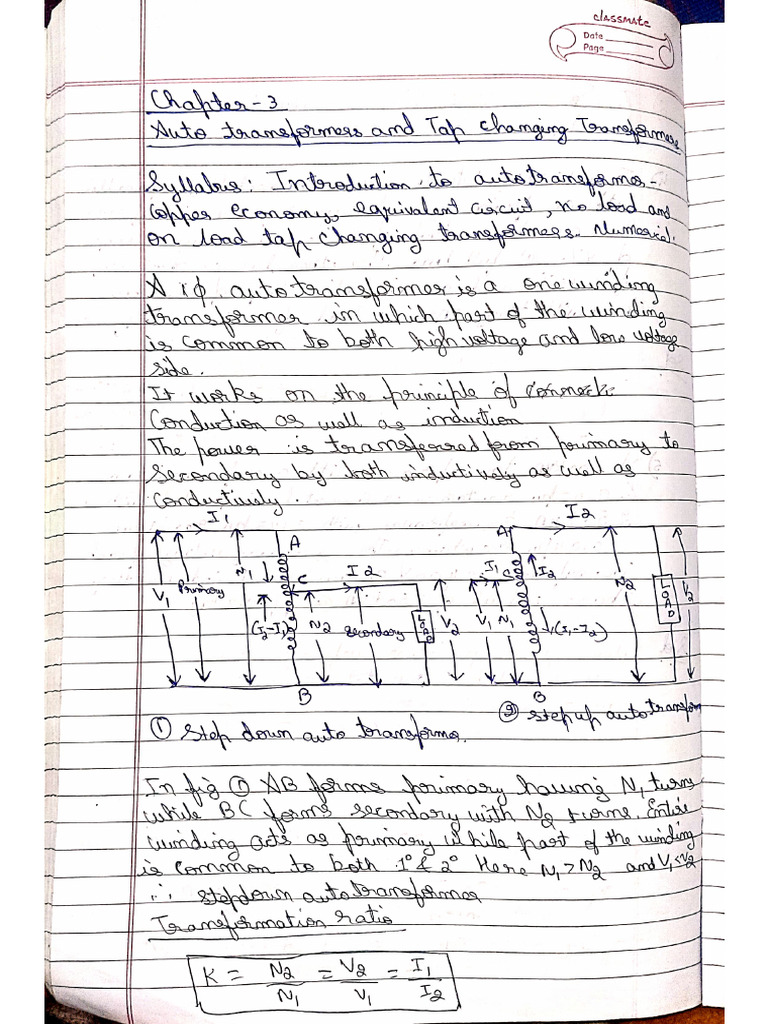 classmate
Date
Page
Chapter-3
Auto transformers and Tap changing Transformers
Syllabus: Introduction to autotransformo-
copper economy, equivalent circuit, no load and
on load tap changing transformers. Numerical.
A 1ϕ autotransformer is a one winding
transformer in which part of the winding
is common to both high voltage and low voltage
side.
It works on the principle of
Conduction as well as induction
The power is transferred from primary to
secondary by both inductively as well as
conductively.
I1 A I2
V1 Primary N1 C I2 (I2-I1) N2 secondary LOAD V2
B
A I2
V1 N1 I1 C I2 (I1-I2) N2 LOAD V2
B
① Step down auto transformo.
② Step up auto transform
In fig ① AB forms primary having N1 turns
while BC forms secondary with N2 turns. Entire
winding acts as primary while part of the winding
is common to both 1° & 2° Here N1>N2 and V1<V2
∴ stepdown autotransformer
Transformation ratio
K = N2/N1 = V2/V1 = I1/I2